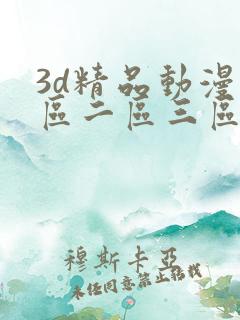 3d精品動漫
區二區三區
穆斯卡亞
未經同意禁止轉載